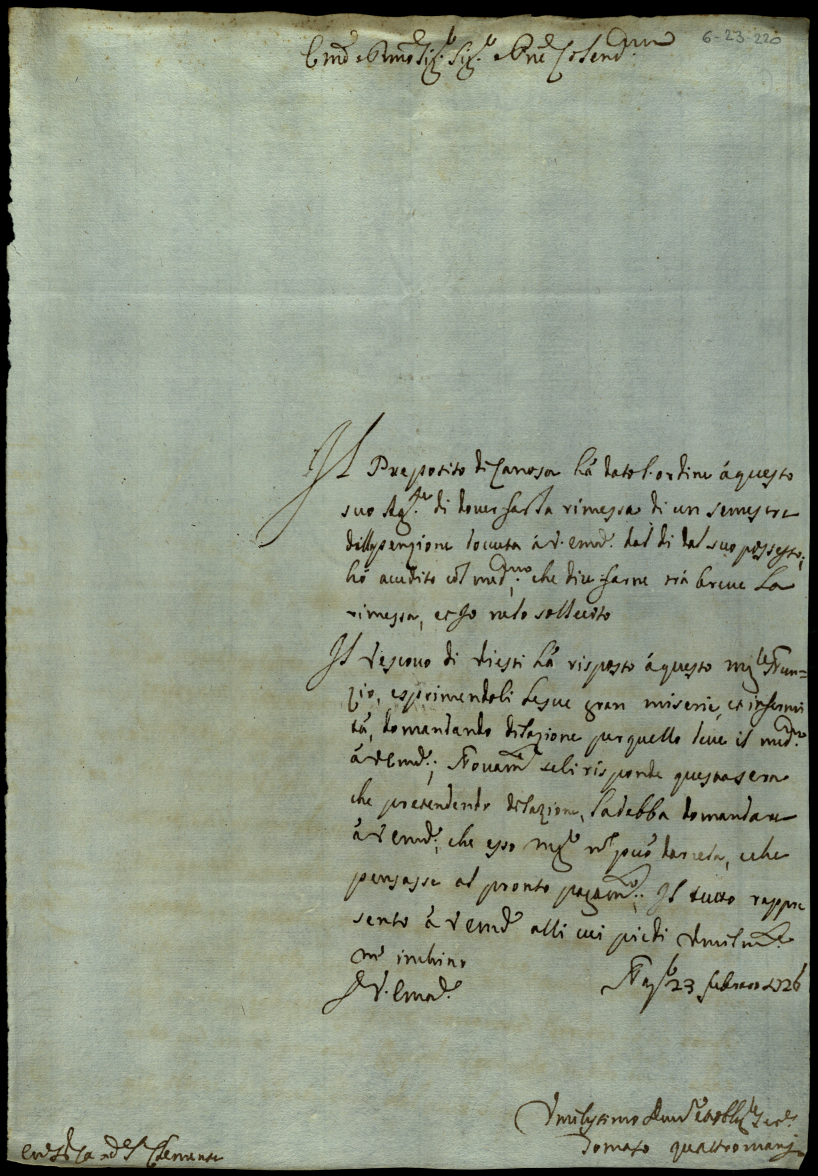 6-23-220
Em.º e R.mo Sig.r Sig.r e P.ne Colend.mo
Il Preposito di Canosa hà dato l'ordine à questo
suo Ag.te di dover far la rimessa di un semestre
della penzione dovuta à V. Em.ª dal di del suo possesso;
hò accudito col med.mo, che dice farne trà breve la
rimessa, et Io ne lo sollecito
Il Vescovo di Viesti hà risposto à questo Mg.re Nun=
zio, esprimendoli le sue gran miserie, et infermi
tà, domandando dilazione per quello deve il med.mo
à V. Em.ª; Novam.te seli risponde questa sera
che pretendendo dilazione, la debba domandare
à V. Em.ª, che esso Mg.re n.n può darcela, e che
pensasse al pronto pagam.to; Il tutto rappre
sento à V. Em.ª alli cui piedi Umilm.te
m'inchino
Di V. Em.ª Nap.li 23 febraro 1726
Umilissimo Dev.mo et obblig.mo Ser.re
Donato Quattromani
Em.º S. Ca
S. Clemente